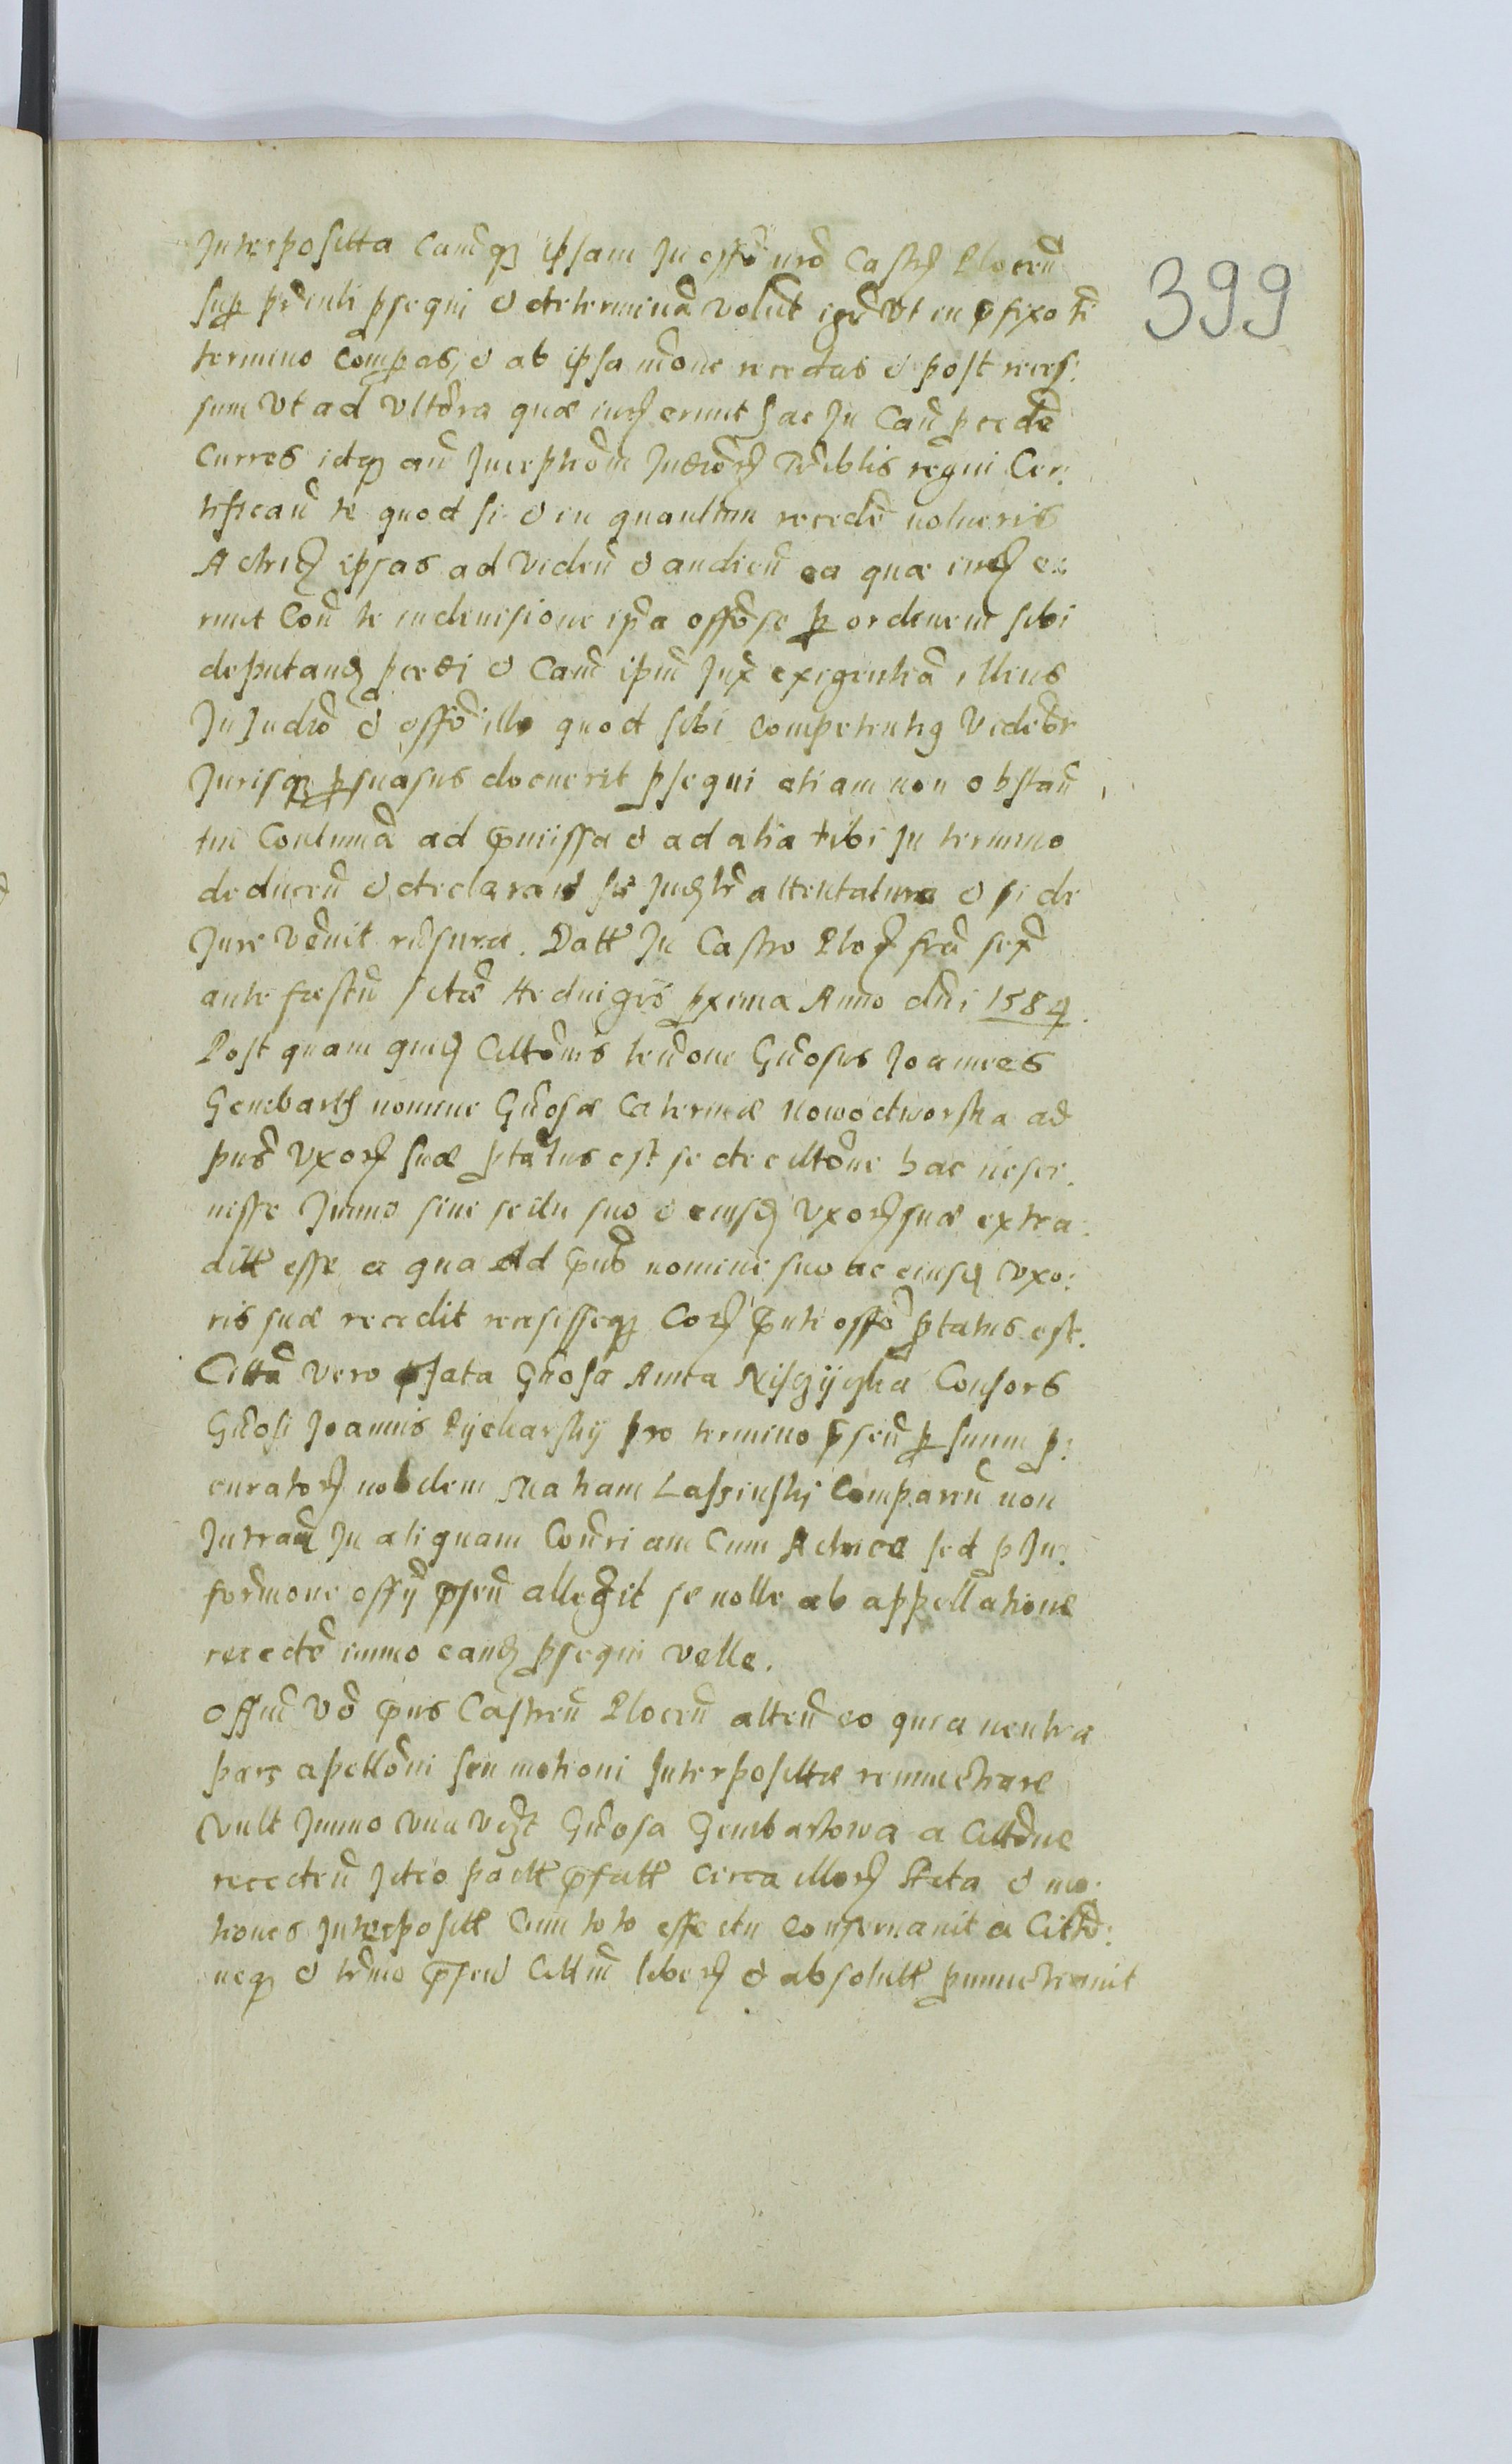 399
Interposilta Camqз ipsam In offo nro Castrꝫ Plocen
sup prdnti psequi & determina volut igr Vt in pfixo te
termino Compas, & ab ipsa mone recedas & post reces:
sum Vt ad Vltora quæ iurꝫ erunt hac In Caŭ pcede
Curres idqз ań Inceptiōm Iudiōrꝫ Triblis regni Cer:
tificań te quod si & in quantum recede nolueris
Actricꝫ ipsas ad Viden & audien ea quæ iurꝫ e:
runt Con te in deuisione ipa offo se p ordinem sibi
deputanꝫ pcedi & Cam ipm Iux exigentia illius
In Iudio & offo illo quod sibi Competentiꝫ Videbr
Jurisqз psuasus docuerit psequi etiam non obstań
tui Contumā ad pmissa & ad alia tibi In termino
deducen & declaran
Jure Venit rnsura. Datt In Castro Plocꝫ fria sex
ante fæstū sctæ Heduigis pxima Anno dni 1584.
Post quam quidꝫ Cittonis tenone Gnosus Joannes
Gembartꝫ nomine Gnosæ Caterinæ Nowodworska ad
pns Vxorꝫ suæ ptatus est se de cittone hac nesci:
uisse Immo sine scitu suo & eiusdꝫ Vxorꝫ suæ extra:
ditt esse a qua Ad pns nomine suo ac eiusdꝫ Vxo:
ris suæ recedit recesisseqз Corꝫ pnti offo ptatus est.
Citta vero pfata Gnosa Anna Consors
Gnosi Joannis Rijcharskij pro termino psen p suum p:
curatorꝫ nobilem Matiam Lassinski Comparen non
Intrań In aliquam Conriam Cum Actrice sed p In:
formone offy psen allegit se nolle ab appellatione
recede immo eandꝫ psequi velle.
Offm Vo pns Castren Plocen atten eo quia neutra
pars apellōni seu motioni Interposittæ renunctiare
Vult Immo Gnosa Gembartowa a Cittone
receden Ideo patt pfatt circa illorꝫ dicta & mo:
tiones Interpositt Cum toto effectu conseruauit a Citto:
neqз & trmo psen Cittm liberꝫ & absolutt pnunctiauit